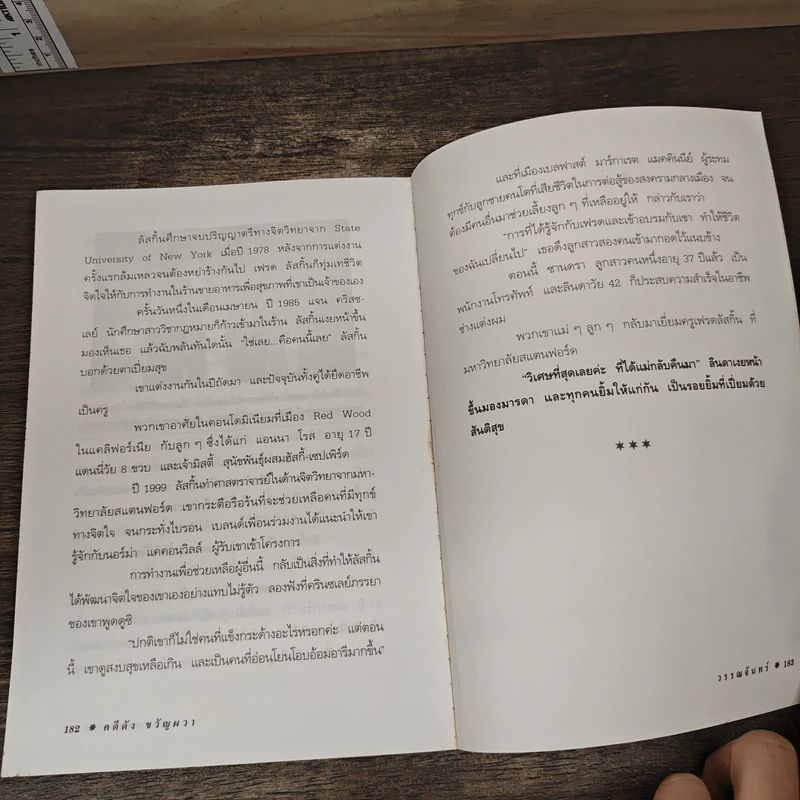 ลัสกิ้นศึกษาจบปริญญาตรีทางจิตวิทยาจาก State
University of New York เมื่อปี 1978 หลังจากการแต่งงาน
ครั้งแรกล้มเหลวจนต้องหย่าร้างกันไป เฟรด ลัสกิ้นก็ทุ่มเทชีวิต
จิตใจให้กับการทำงานในร้านขายอาหารเพื่อสุขภาพที่เขาเป็นเจ้าของเอง
ครั้นวันหนึ่งในเดือนเมษายน ปี 1985 แจน คริสซ-
เลย์ นักศึกษาสาววิชากฎหมายก็ก้าวเข้ามาในร้าน ลัสกิ้นเงยหน้าขึ้น
มองเห็นเธอ แล้วฉับพลันทันใดนั้น "ใช่เลย...คือคนนี้เลย" ลัสกิ้น
บอกด้วยตาเปี่ยมสุข
เขาแต่งงานกันในปีถัดมา และปัจจุบันทั้งคู่ได้ยึดอาชีพ
เป็นครู
พวกเขาอาศัยในคอนโดมิเนียมที่เมือง Red Wood
ในแคลิฟอร์เนีย กับลูก ๆ ซึ่งได้แก่ แอนนา โรส อายุ 17 ปี
แดนนี่วัย 8 ขวบ และเจ้ามิสตี้ สุนัขพันธุ์ผสมฮัสกี้-เชปเพิร์ด
ปี 1999 ลัสกิ้นทำศาสตราจารย์ในด้านจิตวิทยาจากมหา-
วิทยาลัยสแตนฟอร์ด เขากระตือรือร้นที่จะช่วยเหลือคนที่มีทุกข์
ทางจิตใจ จนกระทั่งไบรอน เบลนด์เพื่อนร่วมงานได้แนะนำให้เขา
รู้จักกับนอร์ม่า แคคอนวิลล์ ผู้รับเขาเข้าโครงการ
การทำงานเพื่อช่วยเหลือผู้อื่นนี้ กลับเป็นสิ่งที่ทำให้ลัสกิ้น
ได้พัฒนาจิตใจของเขาเองอย่างแทบไม่รู้ตัว ลองฟังที่ครินซเลย์ภรรยา
ของเขาพูดดูซิ
"ปกติเขาก็ไม่ใช่คนที่แข็งกระด้างอะไรหรอกค่ะ แต่ตอน
นี้ เขาดูสงบสุขเหลือเกิน และเป็นคนที่อ่อนโยนโอบอ้อมอารีมากขึ้น"
182 ✷ คดีดัง ขวัญผวา
และที่เมืองเบลฟาสต์ มาร์กาเรต แมคคินนีย์ ผู้ระทม
ทุกข์กับลูกชายคนโตที่เสียชีวิตในการต่อสู้ของสงครามกลางเมือง จน
ต้องมีคนอื่นมาช่วยเลี้ยงลูก ๆ ที่เหลืออยู่ให้ กล่าวกับเราว่า
"การที่ได้รู้จักกับเฟรดและเข้าอบรมกับเขา ทำให้ชีวิต
ของฉันเปลี่ยนไป" เธอดึงลูกสาวสองคนเข้ามากอดไว้แนบข้าง
ตอนนี้ ซานดรา ลูกสาวคนหนึ่งอายุ 37 ปีแล้ว เป็น
พนักงานโทรศัพท์ และลินดาวัย 42 ก็ประสบความสำเร็จในอาชีพ
ช่างแต่งผม
พวกเขาแม่ ๆ ลูก ๆ กลับมาเยี่ยมครูเฟรดลัสกิ้น ที่
มหาวิทยาลัยสแตนฟอร์ด
"วิเศษที่สุดเลยค่ะ ที่ได้แม่กลับคืนมา" ลินดาเงยหน้า
ขึ้นมองมารดา และทุกคนยิ้มให้แก่กัน เป็นรอยยิ้มที่เปี่ยมด้วย
สันติสุข
✶✶✶
วรรณจันทร์ ✷ 183
INCHES